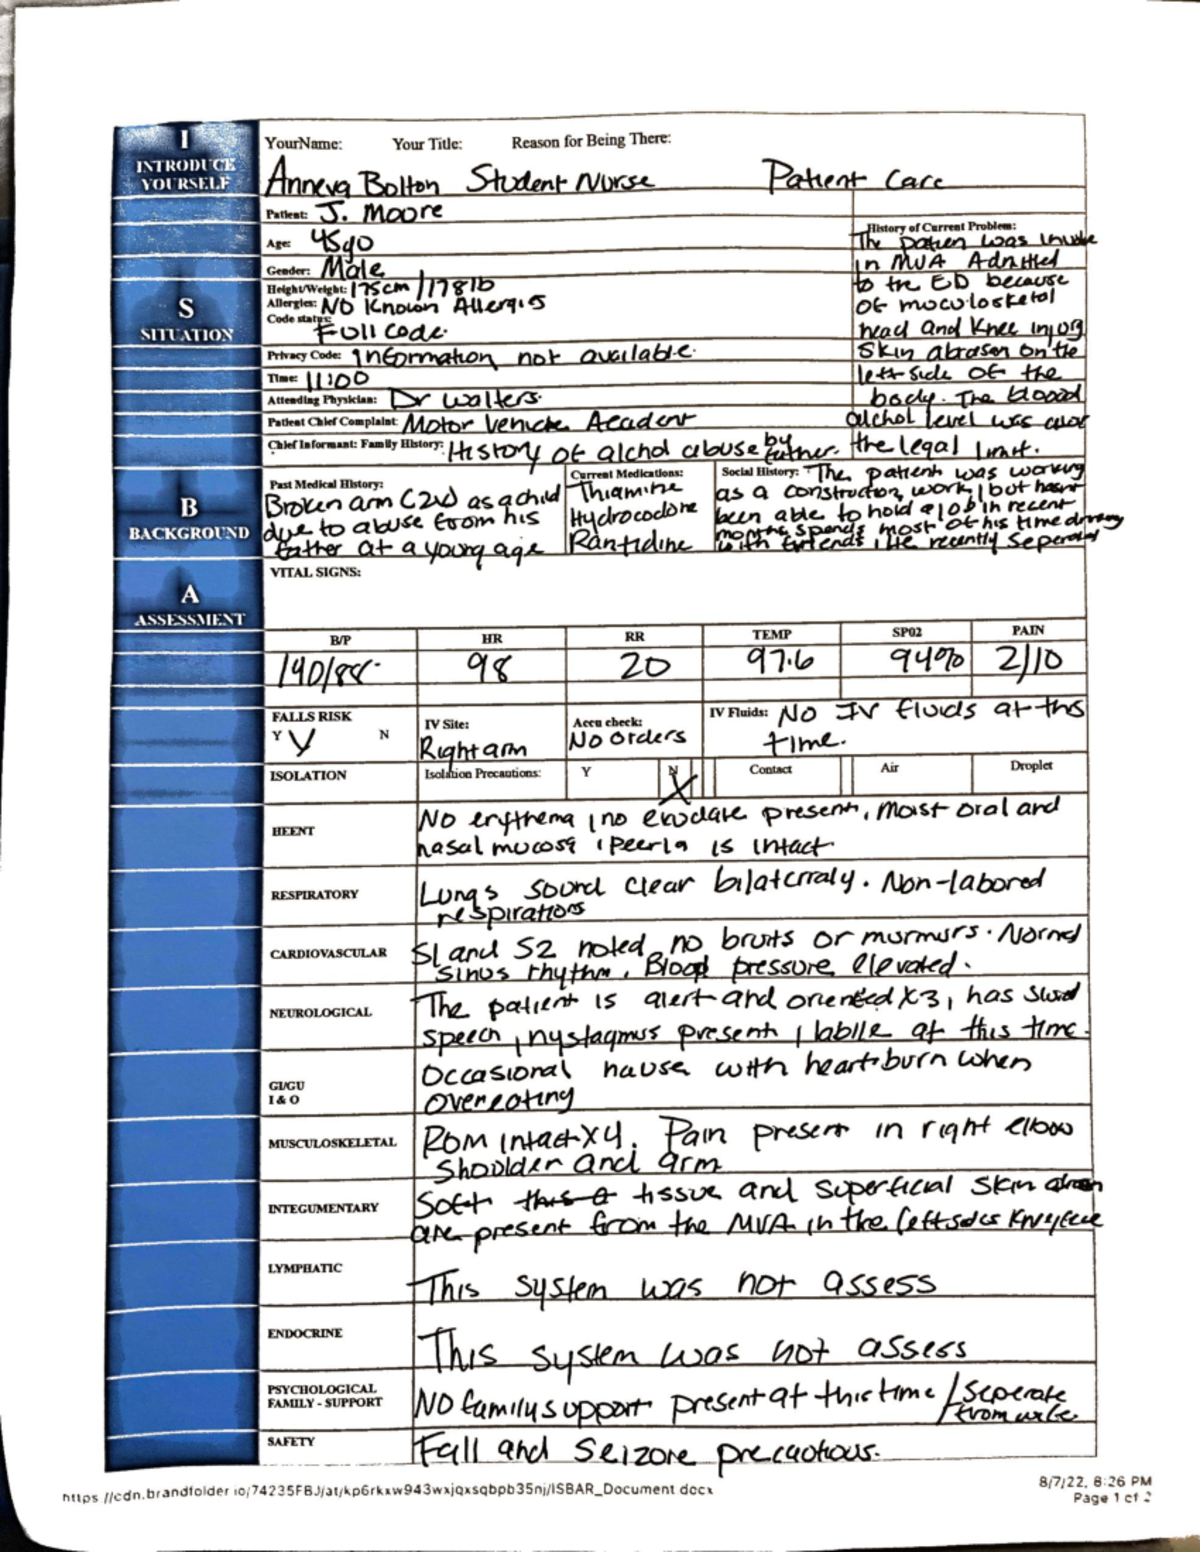 I
INTRODUCE
YOURSELF
YourName: Your Title: Reason for Being There:
Anneva Bolton Student Nurse Patient Care
S
SITUATION
Patient: J. Moore
Age: 45yo
Gender: Male
Height/Weight: 175cm/178lb
Allergies: NO Known Allergis
Code status:
Full Code.
Privacy Code: Information not available.
Time: 11:00
Attending Physician: Dr Walters.
Patient Chief Complaint: Motor Vehicle Accident
Chief Informant: Family History: History of alchol abuse by father.
History of Current Problem:
The patien was
in MVA Admitted
to the ED because
of moculosketal
head and Knee injory
Skin abrason on the
left side of the
body. The bloood
alchol level was
the legal limit.
B
BACKGROUND
Past Medical History:
Broken arm (2x) as a child
due to abuse from his
father at a young age
Current Medications:
Thiamine
Hydrocodone
Rantidine
Social History: The patient was working
as a construction work, but hasnt
been able to hold a job in recent
months, spends most of his time
with friends, He recently Seperated
A
ASSESSMENT
VITAL SIGNS:
B/P HR RR TEMP SP02 PAIN
140/88. 98 20 97.6 94% 2/10
FALLS RISK
Y N
IV Site:
Right arm
Accu check:
No Orders
IV Fluids: No IV fluids at this
time.
ISOLATION Isolation Precautions: Y N X Contact Air Droplet
HEENT
No erythema, no exudate present, Moist oral and
nasal mucosa, Peerla is intact
RESPIRATORY
Lungs sound clear bilaterraly. Non-labored
respirations
CARDIOVASCULAR
S1 and S2 noted, no bruits or murmurs. Normal
sinus rhythm, Blood pressure elevated.
NEUROLOGICAL
The patient is alert and oriented X3, has
speech, nystagmus present, labile at this time.
GI/GU
I & O
Occasional nausea with heartburn when
overeating
MUSCULOSKELETAL
ROM intact X4. Pain present in right elbow
Shoulder and arm
INTEGUMENTARY
Soft tissue and superficial skin
are present from the MVA in the left
LYMPHATIC
This system was not assess
ENDOCRINE
This system was not assess
PSYCHOLOGICAL
FAMILY - SUPPORT
NO family support present at this time / Seperate
from wife.
SAFETY
Fall and Seizore precautions.
https://cdn.brandfolder.io/74235FBJ/at/kp6rkxw943wxjqxsqbpb35nj/ISBAR_Document.docx
8/7/22, 8:26 PM
Page 1 of 2